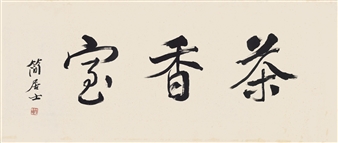 茶香室
简居士